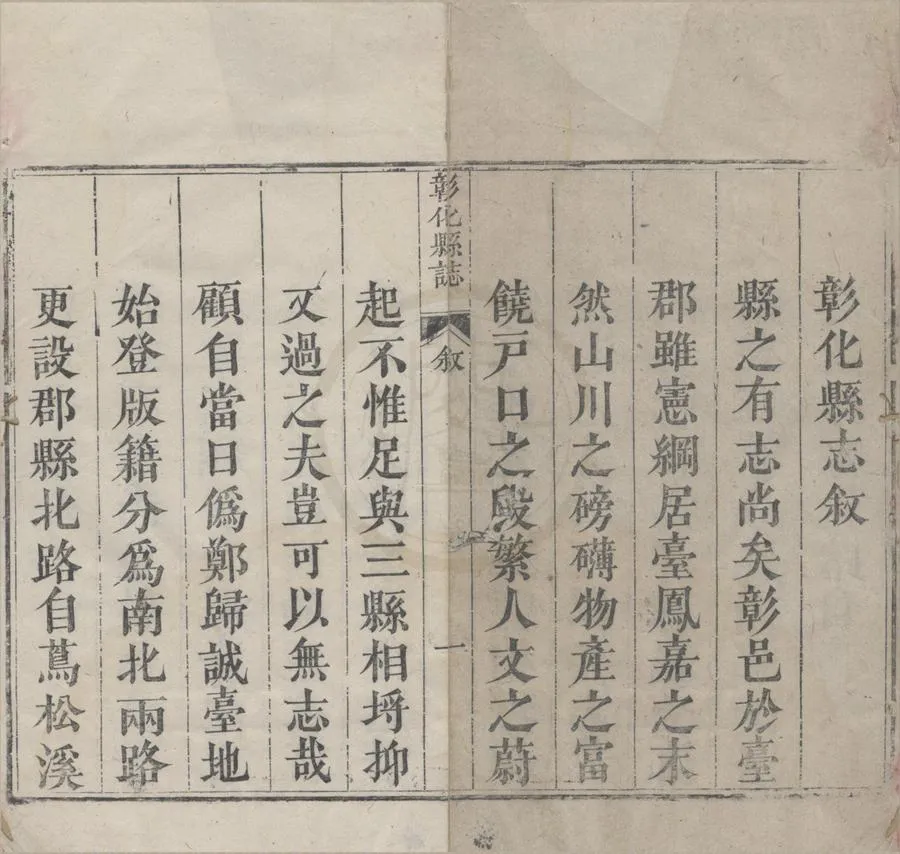 彰化縣志敘
縣之有志尚矣彰邑於臺
郡雖憲綱居臺鳳嘉之末
然山川之磅礴物產之富
饒戸口之殷繁人文之蔚
彰化縣誌 敘 一
起不惟足與三縣相埒抑
又過之夫豈可以無志哉
顧自當日僞鄭歸誠臺地
始登版籍分爲南北兩路
更設郡縣北路自蔦松溪